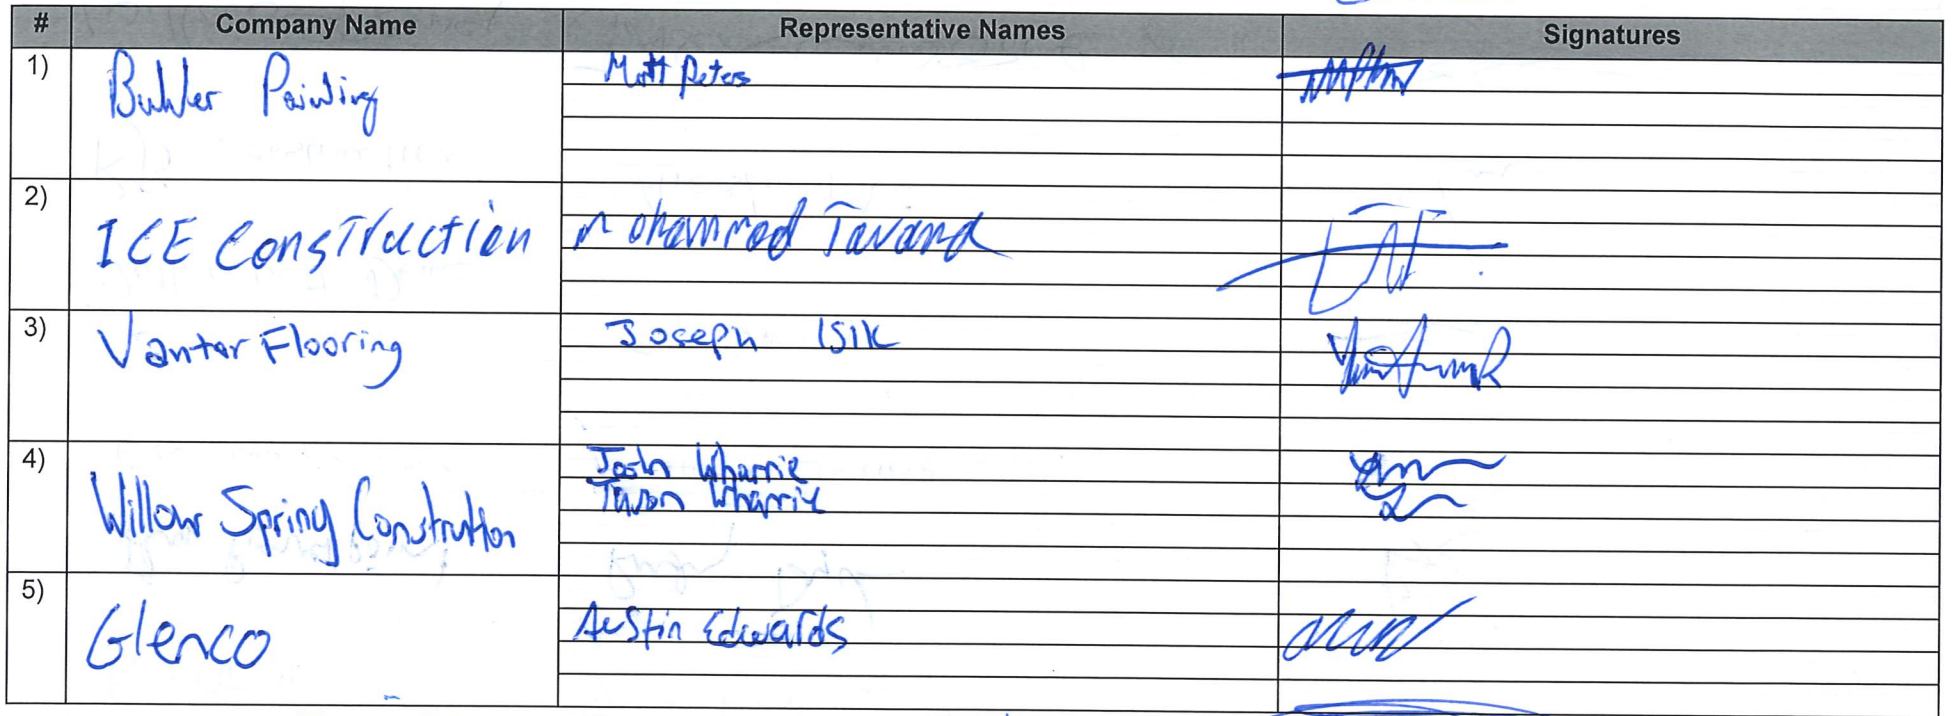 # Company Name Representative Names Signatures
1) Buhler Painting Matt Peters
2) ICE Construction Mohammad Tavand
3) Vantar Flooring Joseph ISIK
4) Willow Spring Construction Josh Wharrie
Tavson Wharrie
5) Glenco Austin Edwards